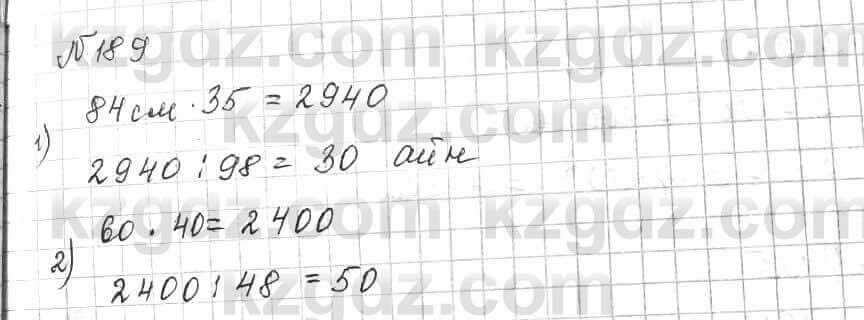 №189
1) 84 см · 35 = 2940
2940 : 98 = 30 айн
2) 60 · 40 = 2400
2400 : 48 = 50
kzgdz.com kzgdz.com
kzgdz.com
kzgdz.com kzgdz.com
kzgdz.com